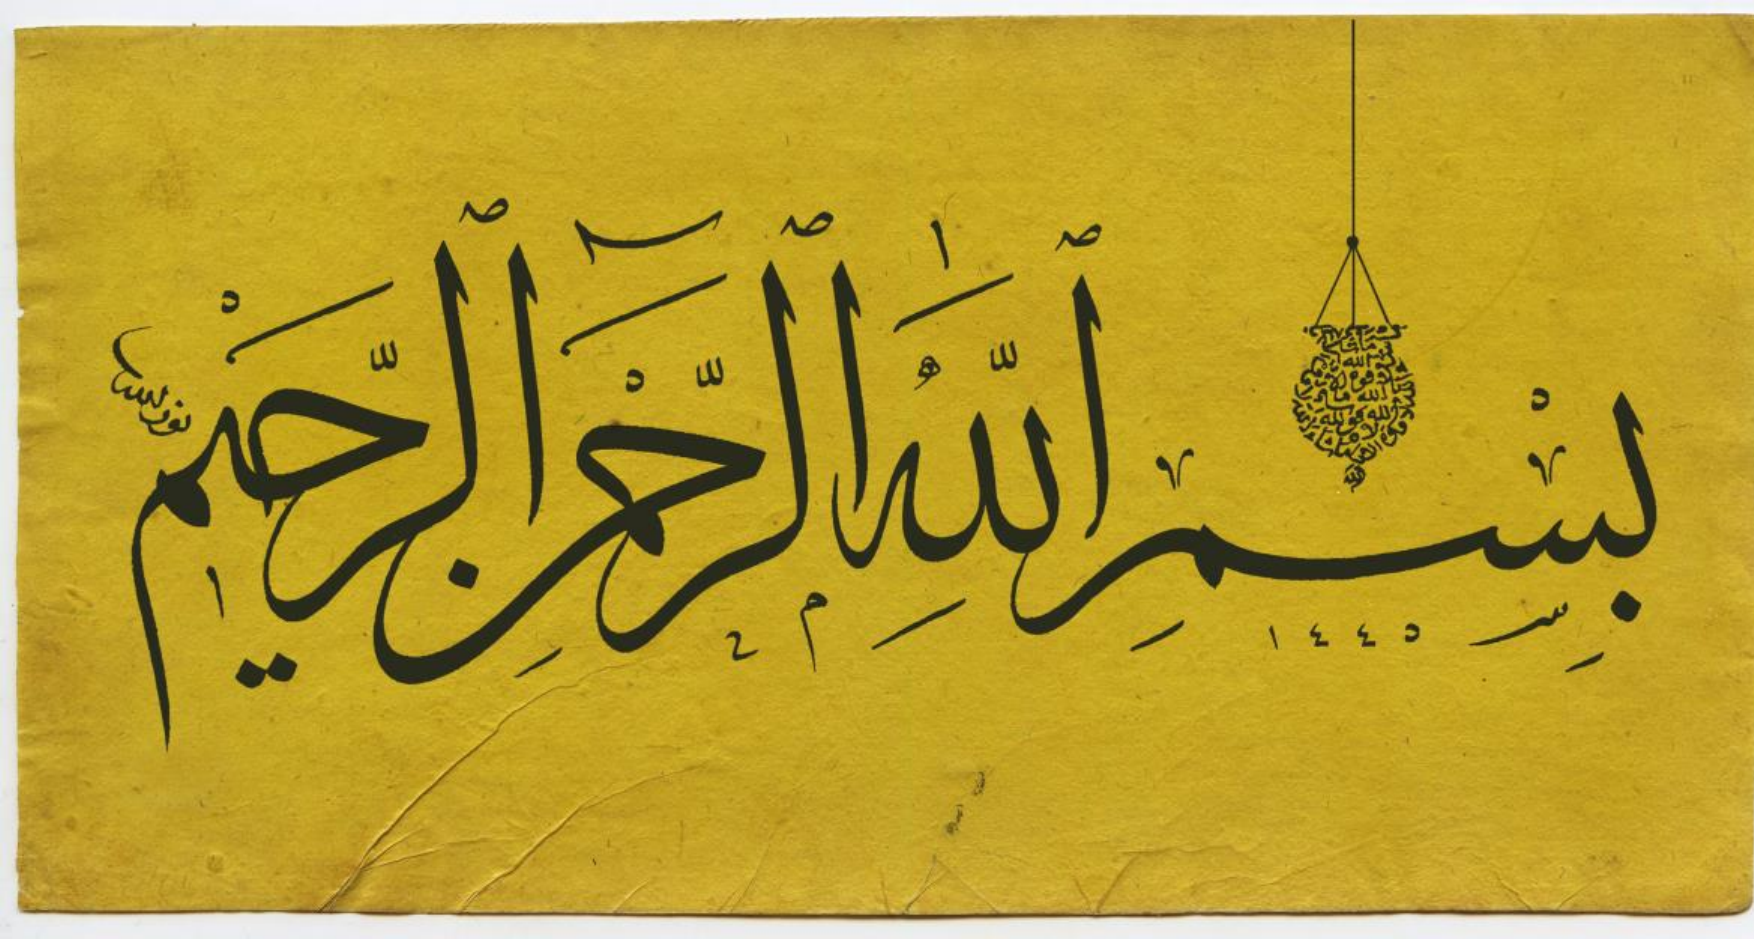 بِسْمِ ٱللَّهِ ٱلرَّحْمَٰنِ ٱلرَّحِيمِ
١٤٤٥